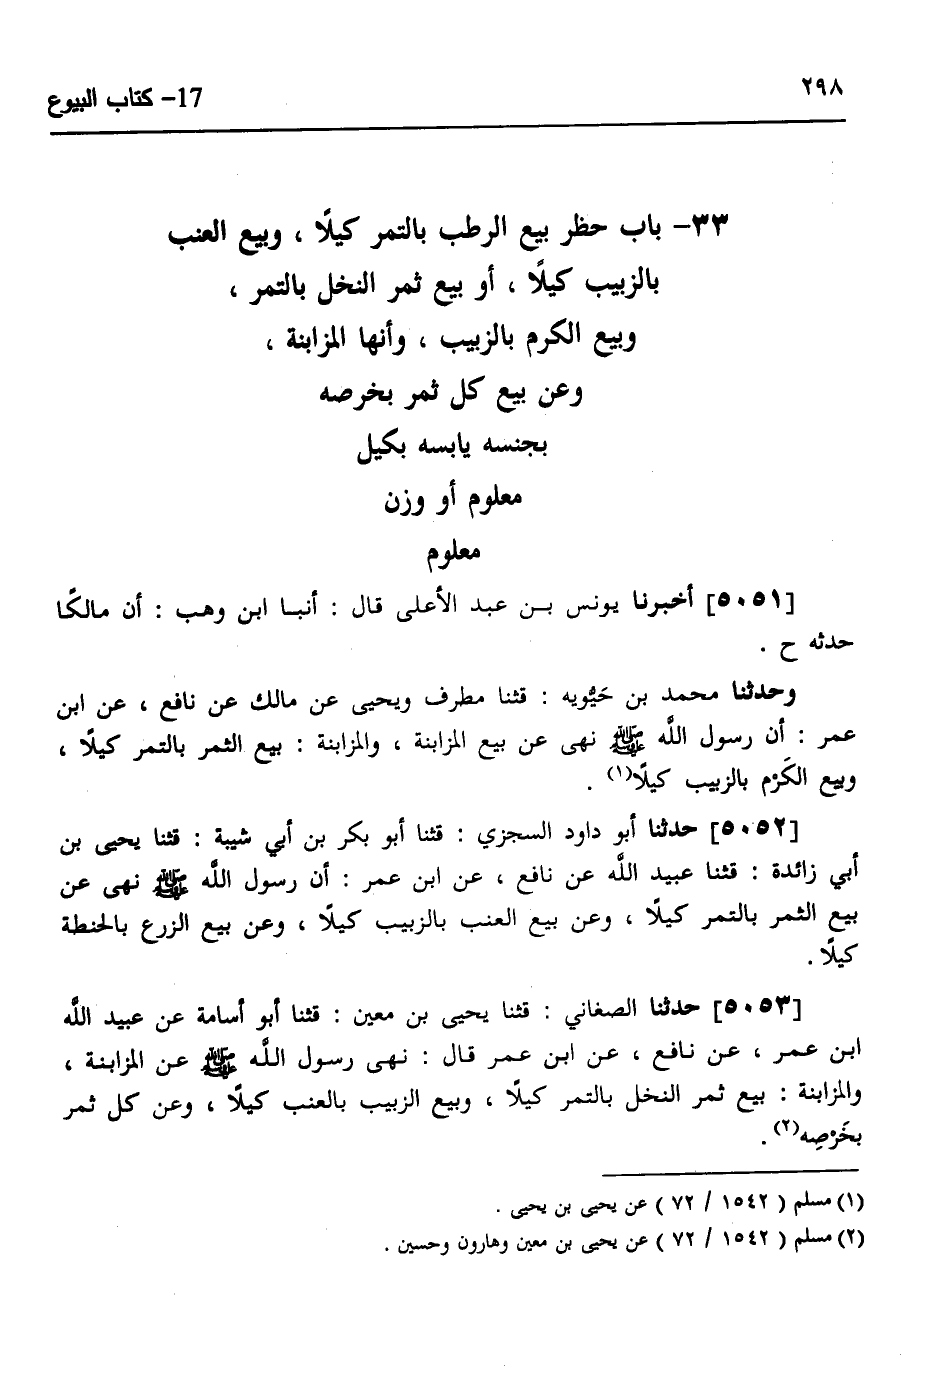 ٢٩٨
17- كتاب البيوع
٣٣- باب حظر بيع الرطب بالتمر كيلًا ، وبيع العنب
بالزبيب كيلًا ، أو بيع ثمر النخل بالتمر ،
وبيع الكرم بالزبيب ، وأنها المزابنة ،
وعن بيع كل ثمر بخرصه
بجنسه يابسه بكيل
معلوم أو وزن
معلوم
[٥٠٥١] أخبرنا يونس بن عبد الأعلى قال : أنبا ابن وهب : أن مالكًا
حدثه ح .
وحدثنا محمد بن حَيُّويه : قثنا مطرف ويحيى عن مالك عن نافع ، عن ابن
عمر : أن رسول اللَّه ﷺ نهى عن بيع المزابنة ، والمزابنة : بيع الثمر بالتمر كيلًا ،
وبيع الكَرْم بالزبيب كيلًا(١) .
[٥٠٥٢] حدثنا أبو داود السجزي : قثنا أبو بكر بن أبي شيبة : قثنا يحيى بن
أبي زائدة : قثنا عبيد اللَّه عن نافع ، عن ابن عمر : أن رسول اللَّه ﷺ نهى عن
بيع الثمر بالتمر كيلًا ، وعن بيع العنب بالزبيب كيلًا ، وعن بيع الزرع بالحنطة
كيلًا .
[٥٠٥٣] حدثنا الصغاني : قثنا يحيى بن معين : قثنا أبو أسامة عن عبيد اللَّه
ابن عمر ، عن نافع ، عن ابن عمر قال : نهى رسول اللَّه ﷺ عن المزابنة ،
والمزابنة : بيع ثمر النخل بالتمر كيلًا ، وبيع الزبيب بالعنب كيلًا ، وعن كل ثمر
بخَرْصِه(٢) .
(١) مسلم ( ١٥٤٢ / ٧٢ ) عن يحيى بن يحيى .
(٢) مسلم ( ١٥٤٢ / ٧٢ ) عن يحيى بن معين وهارون وحسين .